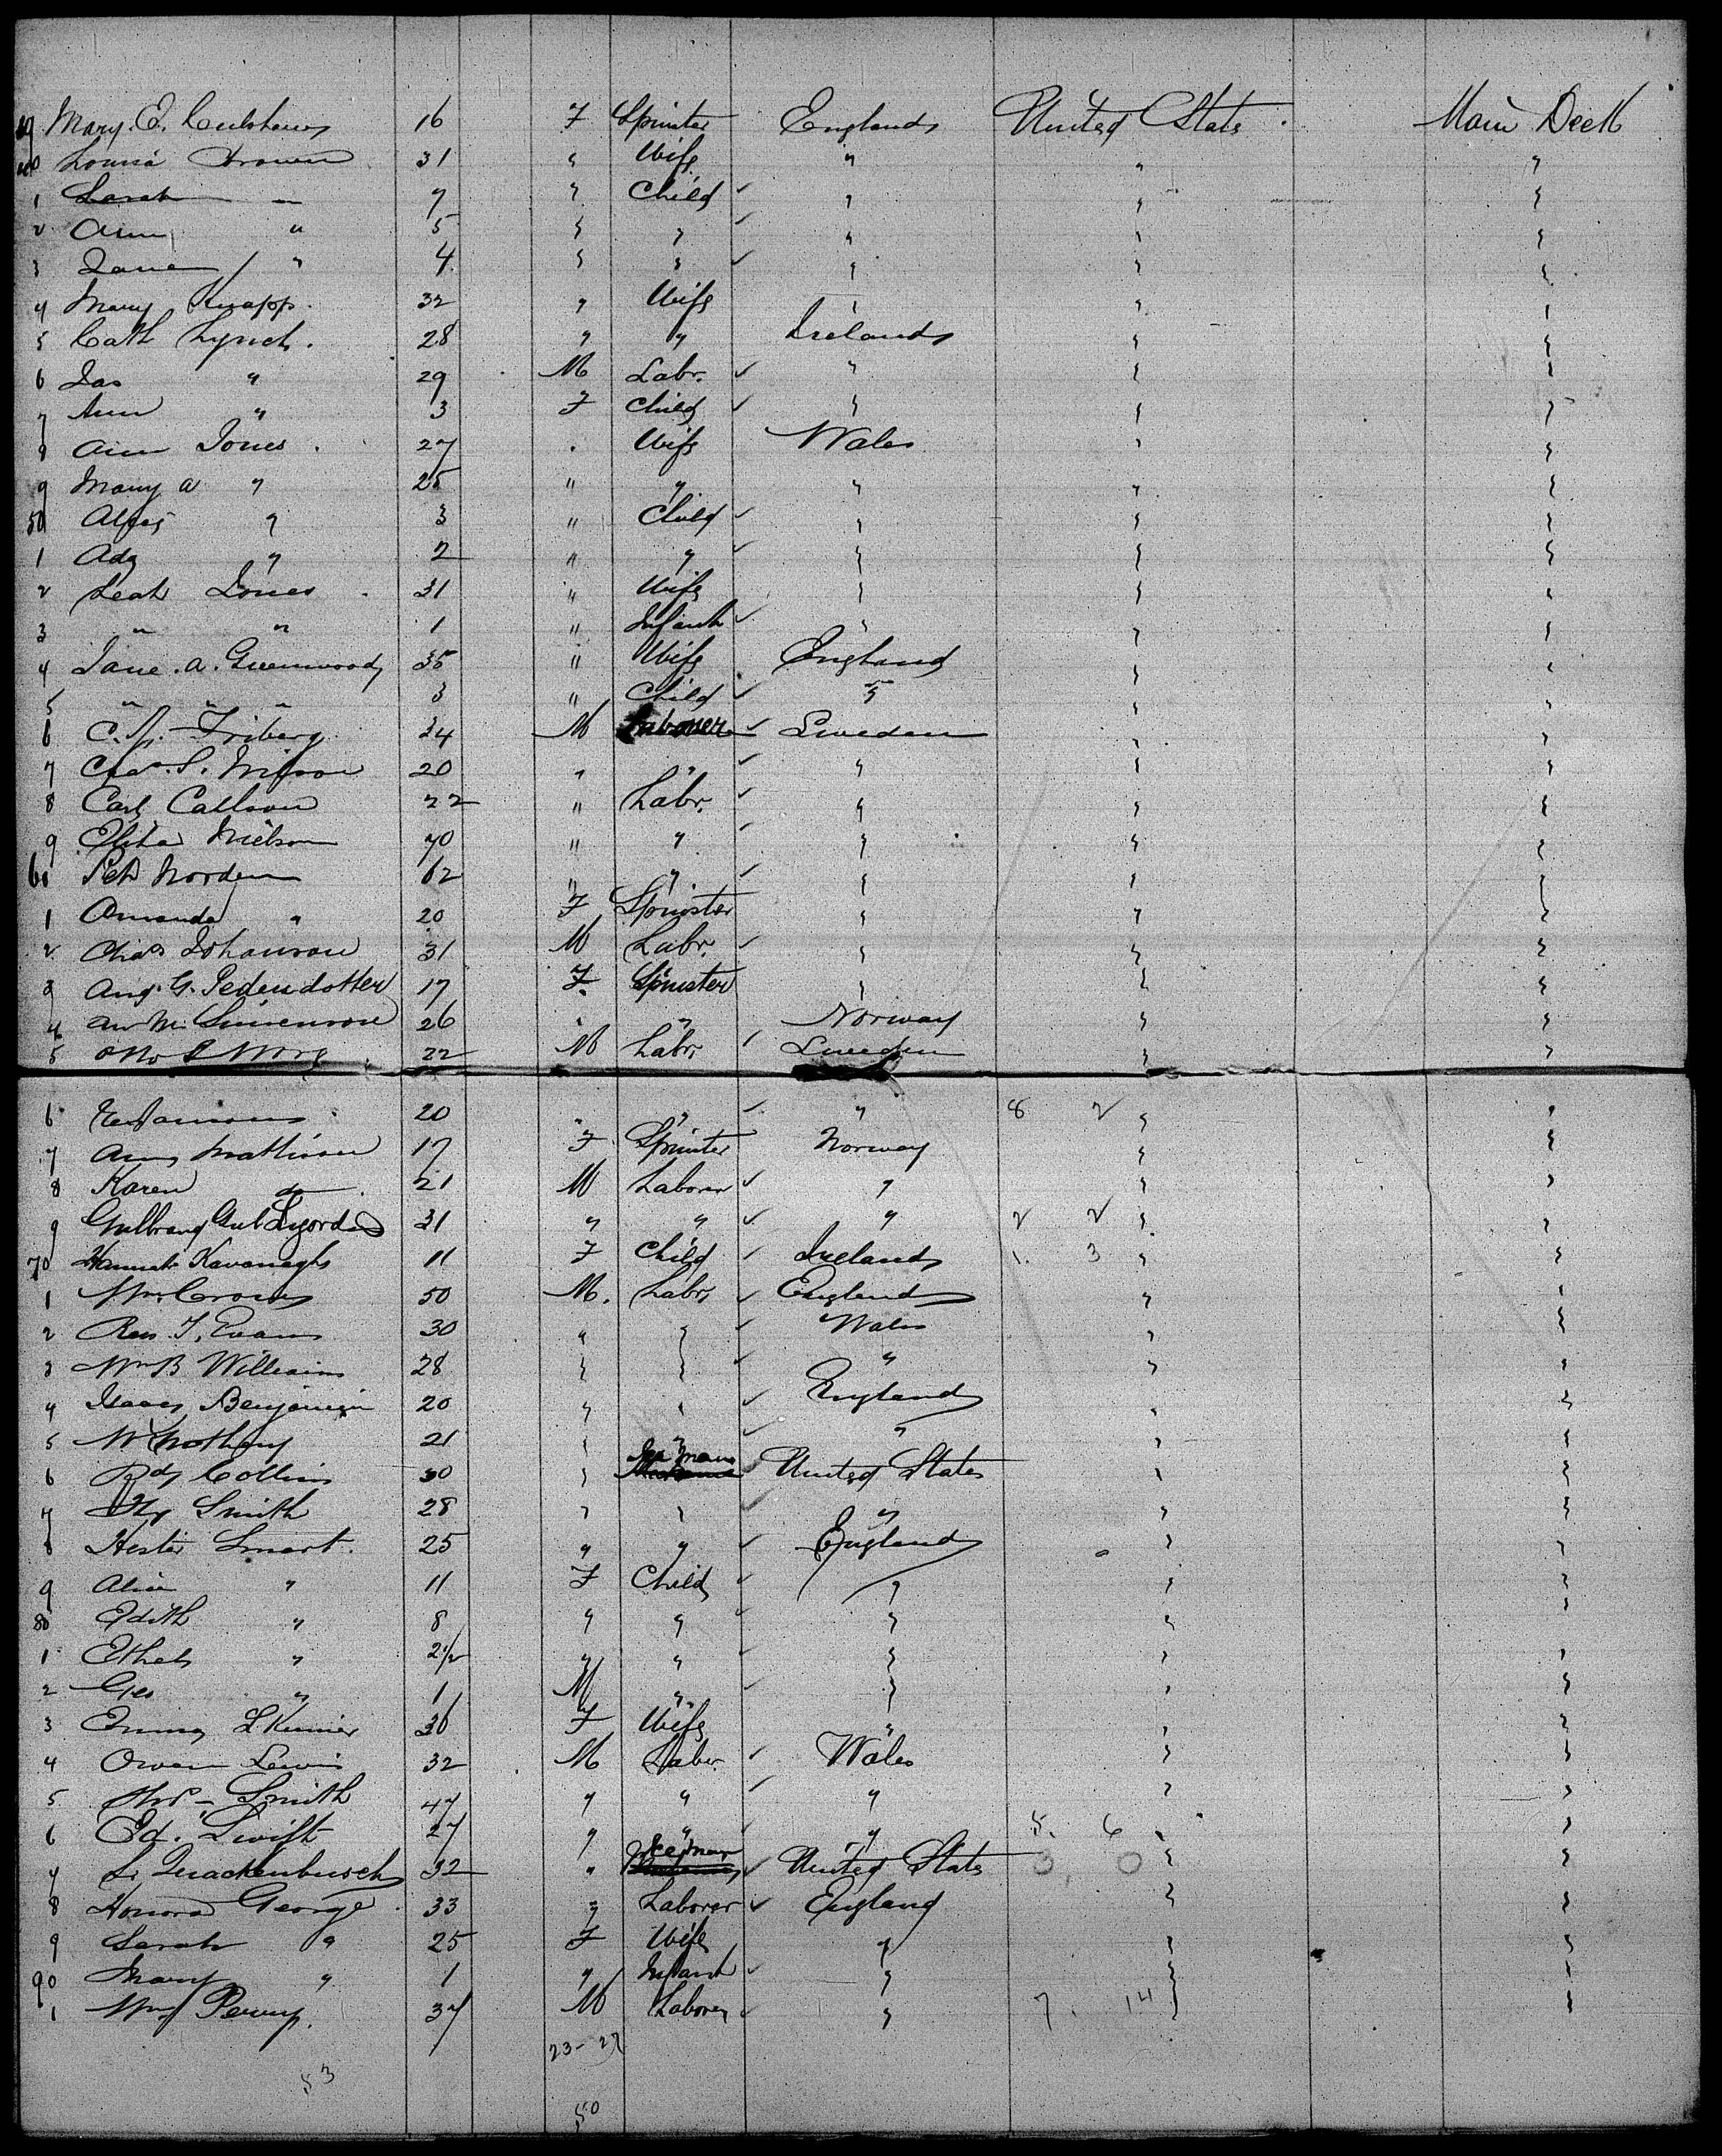 39 Mary. E. 16 F Spinster England United State Main Deck
40 Louisa Brown 31 " Wife " " "
1 Sarah " 7 " Child " " "
2 Ann " 5 " " " " "
3 Jane " 4 " " " " "
4 Mary Knapp. 32 " Wife " " "
5 Cath Lynch. 28 " " Ireland " "
6 Jas " 29 M Labr. " " "
7 Ann " 3 F Child " " "
8 Ann Jones. 27 " Wife Wales " "
9 Mary A " 25 " " " " "
50 " 3 " Child " " "
1 Ada " 2 " " " " "
2 Leah Jones 31 " Wife " " "
3 " " 1 " Infant " " "
4 Jane. A. Greenwood 35 " Wife England " "
5 " " " 3 " Child " " "
6 Friberg 24 M Laborer Sweden " "
7 Chas. S. 20 " " " " "
8 Carl Callson 22 " Labr. " " "
9 Nielson 40 " " " " "
60 Norden 62 " " " " "
1 Amanda " 20 F Spinster " " "
2 Chas Johanson 31 M Labr. " " "
3 Aug. G. Pedersdotter 17 F. Spinster " " "
4 26 " " Norway " "
5 Otto 22 M Labr, Sweden " "
6 20 " " " 8 2 " "
7 Ann Mathison 17 F Spinster Norway " "
8 Karen do 21 M Laborer " " "
9 Gulbrand 31 " " " 2 2 " "
70 Hannah Kavanagh 11 F Child Ireland 1. 3 " "
1 Wm. 50 M. Labr, England " "
2 Evans 30 " " Wales " "
3 Wm B Williams 28 " " " " "
4 Isaac Benjamin 20 " " England " "
5 W 21 " " " " "
6 Rd Collins 30 " United States " "
7 Hy Smith 28 " " " " "
8 Hester Smart. 25 " " England " "
9 Alice " 11 F Child " " "
80 Edith " 8 " " " " "
1 Ethel " 2 1/2 " " " " "
2 Geo " 1 M " " " "
3 Emma Skinner 36 F Wife " " "
4 Owen Lewis 32 M Labr. Wales " "
5 Smith 47 " " " " "
6 Ed. Swift 27 " " " 5. 6 " "
7 L. Quackenbusch 32 " United States 3 0 " "
8 Honora George. 33 " Laborer England " "
9 Sarah " 25 F Wife " " "
90 Mary " 1 " Infant " " "
1 Wm Perry. 37 M Laborer " 7. 14 " "
23-27
53
50